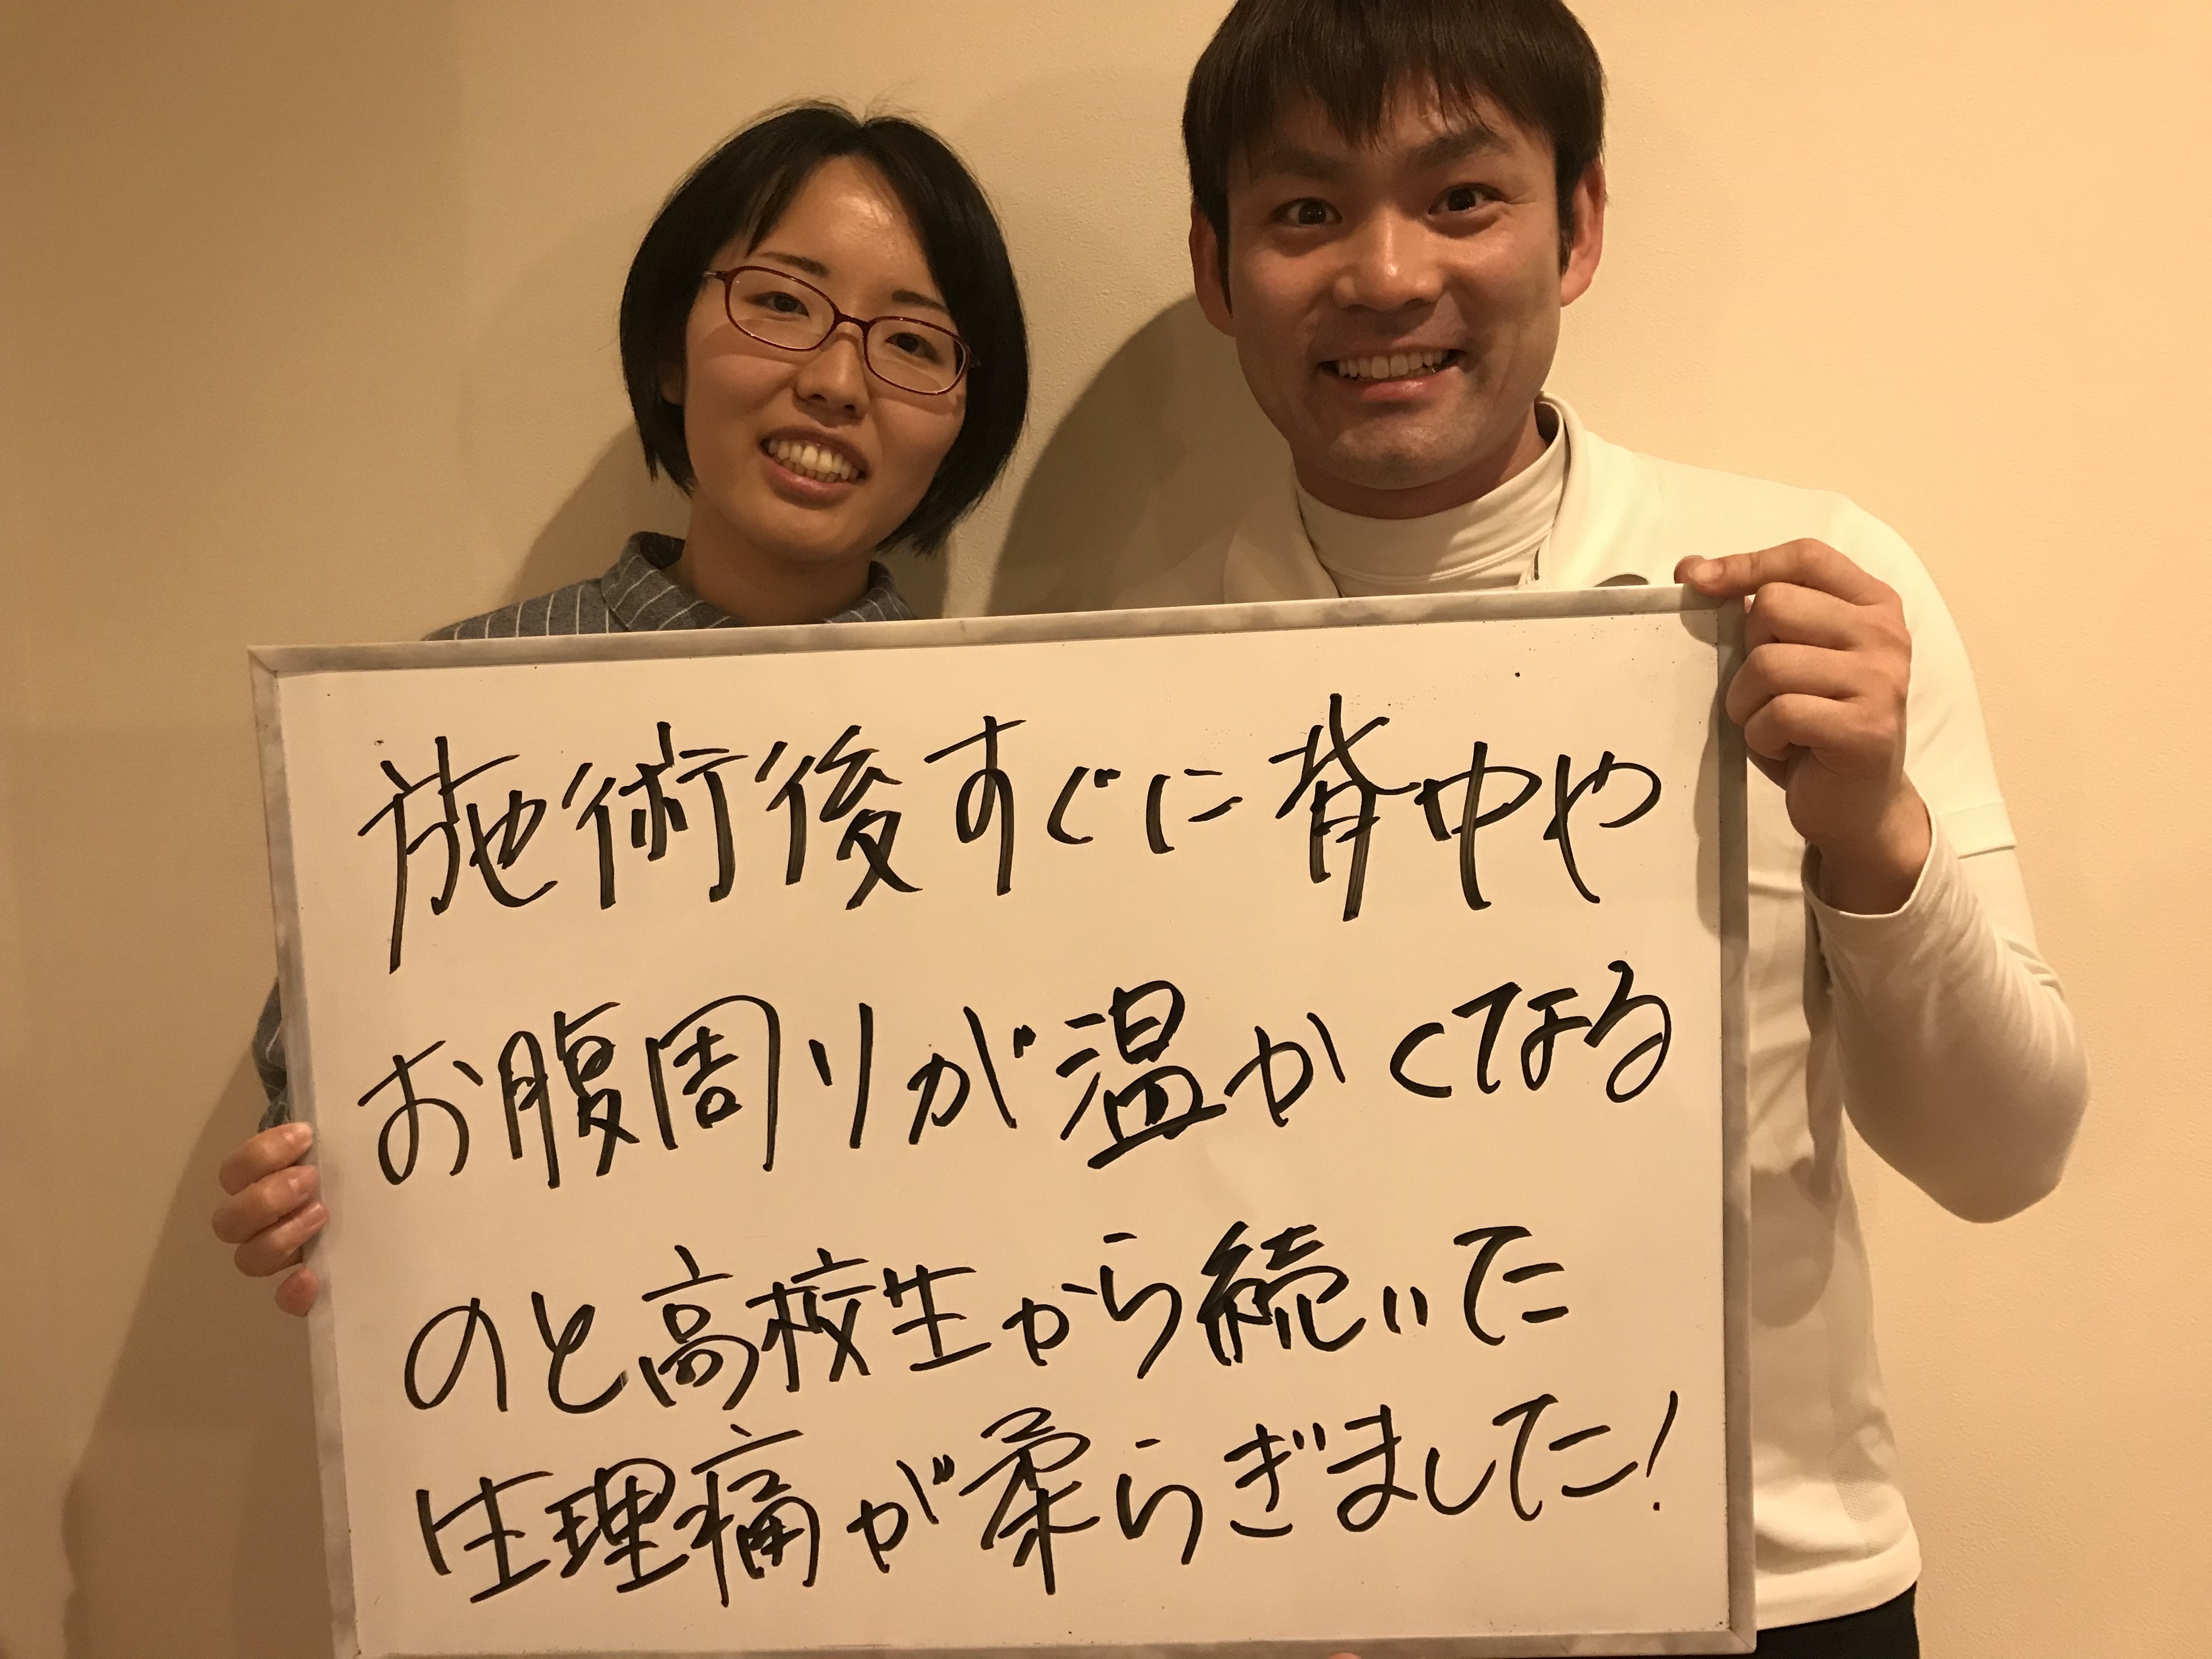 施術後すぐに背中や
お腹周りが温かくなる
のと高校生から続いた
生理痛が柔らぎました!